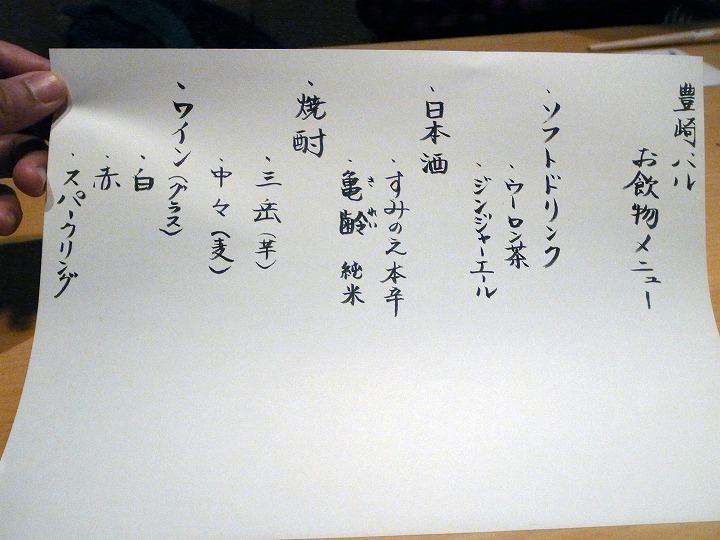 豊崎バル
お飲物メニュー
・ソフトドリンク
・ウーロン茶
・ジンジャーエール
・日本酒
・すみのえ本辛
・亀齢 純米
きれい
・焼酎
・三岳(芋)
・中々(麦)
・ワイン(グラス)
・白
・赤
・スパークリング